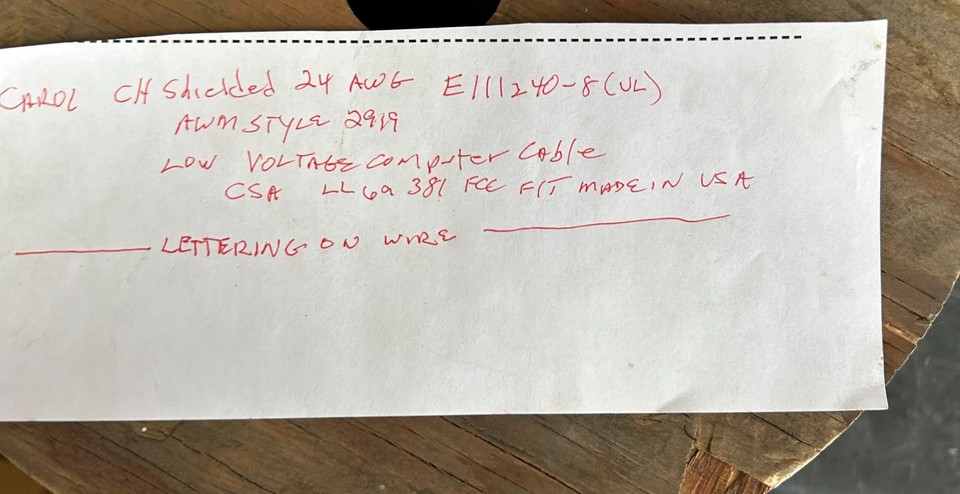 CAROL CH Shielded 24 AWG E111240-8 (UL)
AWM STYLE 2919
LOW VOLTAGE computer CABle
CSA LL 69 381 FCC FIT MADE IN USA
LETTERING ON WIRE